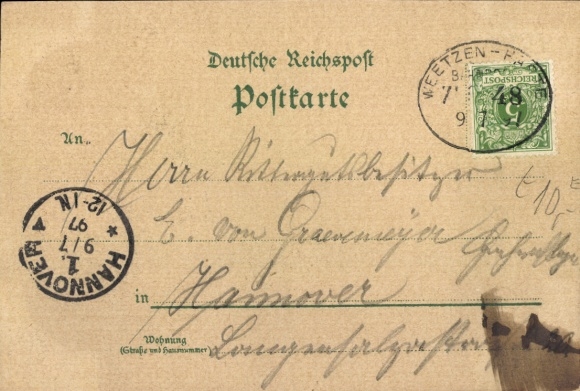 Deutsche Reichspost
Postkarte
WEETZEN - HASTE
48
9 7
REICHSPOST
5
An
Herrn Rittergutsbesitzer
E. von Graevemeyer
€ 10,-
HANNOVER
1.
9/7
97
12-1N.
in Hannover
Wohnung
(Straße und Hausnummer)
Langensalzastraße